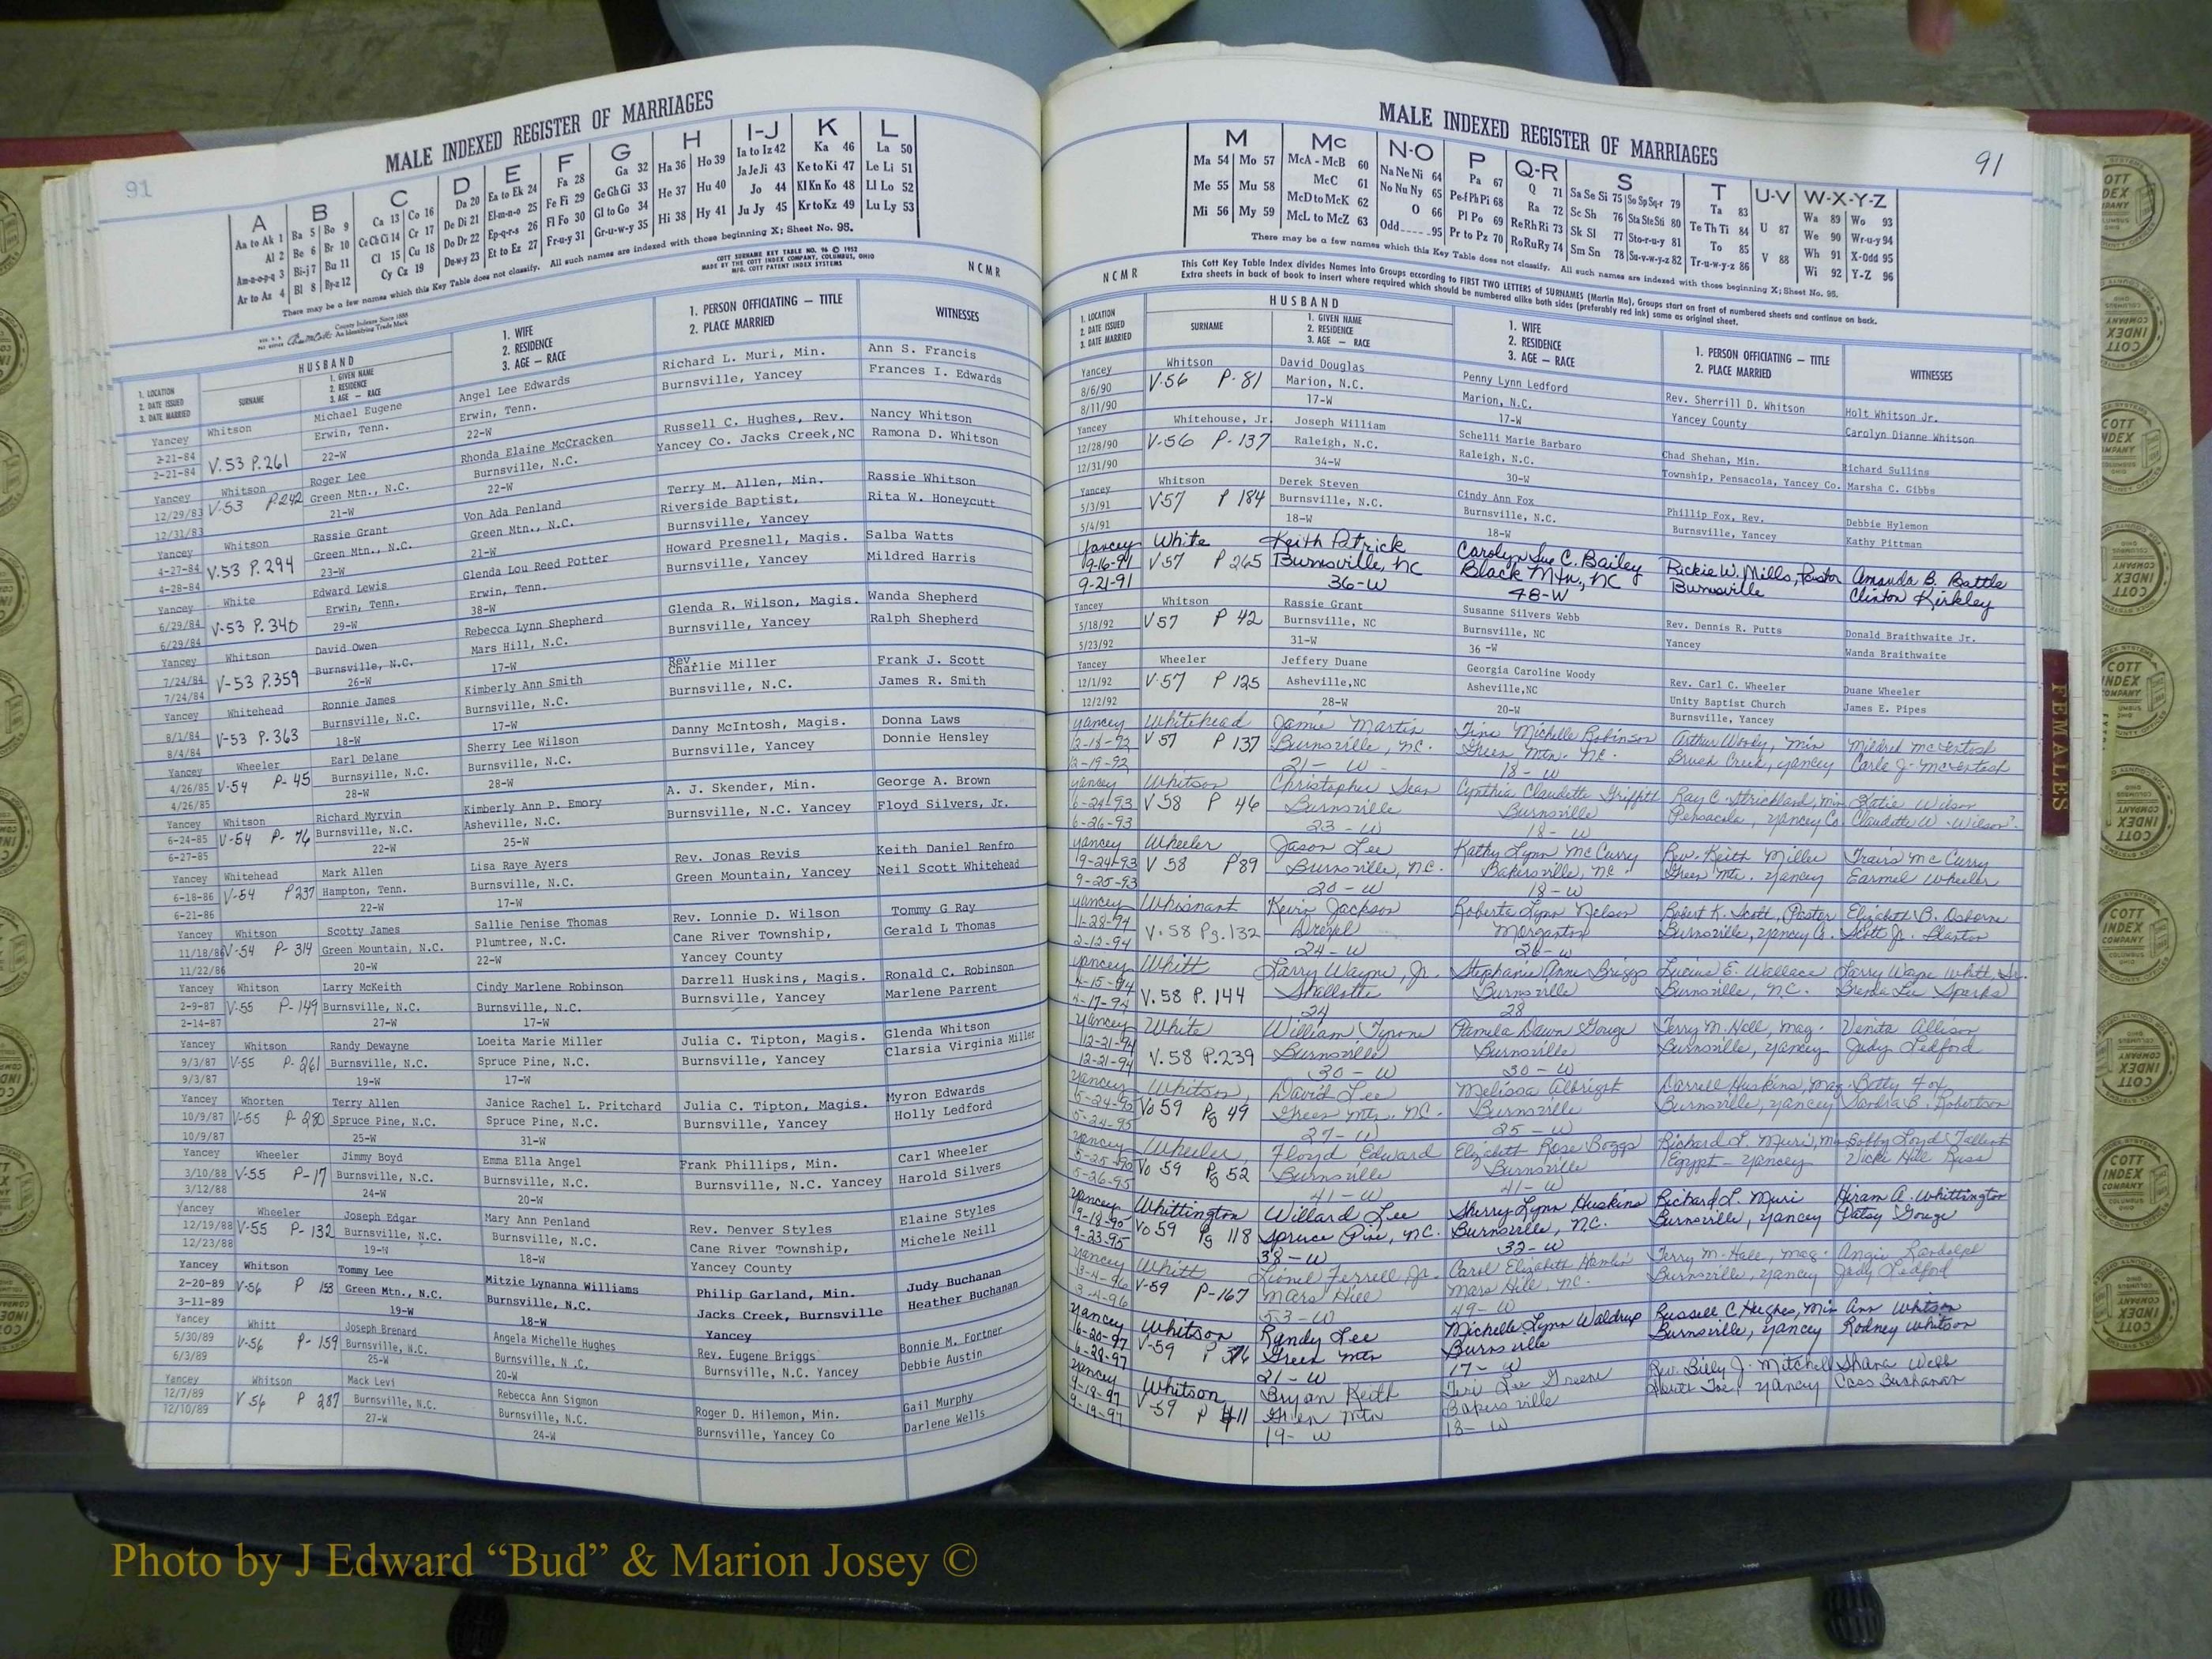 91
MALE INDEXED REGISTER OF MARRIAGES
A B C D E F G H I-J K L
Aa to Ak 1 Ba 5 Bo 9 Ca 13 Co 16 Da 20 Ea to Ek 24 Fa 28 Ga 32 Ha 36 Ho 39 Ia to Iz 42 Ka 46 La 50
Al 2 Be 6 Br 10 Ce Ch Ci 14 Cr 17 De Di 21 El-m-n-o 25 Fe Fi 29 Ge Gh Gi 33 He 37 Hu 40 Ja Je Ji 43 Ke to Ki 47 Le Li 51
Am-n-o-p-q 3 Bi-j 7 Bu 11 Cl 15 Cu 18 Do Dr 22 Ep-q-r-s 26 Fl Fo 30 Gl to Go 34 Hi 38 Hy 41 Jo 44 Kl Kn Ko 48 Ll Lo 52
Ar to Az 4 Bl 8 By-z 12 Cy Cz 19 Du-w-y 23 Et to Ez 27 Fr-u-y 31 Gr-u-w-y 35 Ju Jy 45 Kr to Kz 49 Lu Ly 53
There may be a few names which this Key Table does not classify. All such names are indexed with those beginning X; Sheet No. 95.
COTT SURNAME KEY TABLE NO. 96 © 1952
MADE BY THE COTT INDEX COMPANY, COLUMBUS, OHIO
MFG. COTT PATENT INDEX SYSTEMS
NCMR
County Indexes Since 1888
An Identifying Trade Mark
1. LOCATION
2. DATE ISSUED
3. DATE MARRIED
HUSBAND
SURNAME
1. GIVEN NAME
2. RESIDENCE
3. AGE — RACE
1. WIFE
2. RESIDENCE
3. AGE — RACE
1. PERSON OFFICIATING — TITLE
2. PLACE MARRIED
WITNESSES
Yancey Whitson Michael Eugene Angel Lee Edwards Richard L. Muri, Min. Ann S. Francis
2-21-84 V.53 P.261 Erwin, Tenn. Erwin, Tenn. Burnsville, Yancey Frances I. Edwards
2-21-84 22-W 22-W
Yancey Whitson Roger Lee Rhonda Elaine McCracken Russell C. Hughes, Rev. Nancy Whitson
12/29/83 V-53 P242 Green Mtn., N.C. Burnsville, N.C. Yancey Co. Jacks Creek,NC Ramona D. Whitson
12/31/83 21-W 22-W
Yancey Whitson Rassie Grant Von Ada Penland Terry M. Allen, Min. Rassie Whitson
4-27-84 V.53 P.294 Green Mtn., N.C. Green Mtn., N.C. Riverside Baptist, Rita W. Honeycutt
4-28-84 23-W 21-W Burnsville, Yancey
Yancey White Edward Lewis Glenda Lou Reed Potter Howard Presnell, Magis. Salba Watts
6/29/84 V-53 P.340 Erwin, Tenn. Erwin, Tenn. Burnsville, Yancey Mildred Harris
6/29/84 29-W 38-W
Yancey Whitson David Owen Rebecca Lynn Shepherd Glenda R. Wilson, Magis. Wanda Shepherd
7/24/84 V-53 P.359 Burnsville, N.C. Mars Hill, N.C. Burnsville, Yancey Ralph Shepherd
7/24/84 26-W 17-W
Yancey Whitehead Ronnie James Kimberly Ann Smith Rev. Charlie Miller Frank J. Scott
8/1/84 V-53 P.363 Burnsville, N.C. Burnsville, N.C. Burnsville, N.C. James R. Smith
8/4/84 18-W 17-W
Yancey Wheeler Earl Delane Sherry Lee Wilson Danny McIntosh, Magis. Donna Laws
4/26/85 V-54 P-45 Burnsville, N.C. Burnsville, N.C. Burnsville, Yancey Donnie Hensley
4/26/85 28-W 28-W
Yancey Whitson Richard Myrvin Kimberly Ann P. Emory A. J. Skender, Min. George A. Brown
6-24-85 V-54 P-76 Burnsville, N.C. Asheville, N.C. Burnsville, N.C. Yancey Floyd Silvers, Jr.
6-27-85 22-W 25-W
Yancey Whitehead Mark Allen Lisa Raye Ayers Rev. Jonas Revis Keith Daniel Renfro
6-18-86 V-54 P237 Hampton, Tenn. Burnsville, N.C. Green Mountain, Yancey Neil Scott Whitehead
6-21-86 22-W 17-W
Yancey Whitson Scotty James Sallie Denise Thomas Rev. Lonnie D. Wilson Tommy G Ray
11/18/86 V-54 P-314 Green Mountain, N.C. Plumtree, N.C. Cane River Township, Gerald L Thomas
11/22/86 20-W 22-W Yancey County
Yancey Whitson Larry McKeith Cindy Marlene Robinson Darrell Huskins, Magis. Ronald C. Robinson
2-9-87 V-55 P-149 Burnsville, N.C. Burnsville, N.C. Burnsville, Yancey Marlene Parrent
2-14-87 27-W 17-W
Yancey Whitson Randy Dewayne Loeita Marie Miller Julia C. Tipton, Magis. Glenda Whitson
9/3/87 V-55 P-261 Burnsville, N.C. Spruce Pine, N.C. Burnsville, Yancey Clarsia Virginia Miller
9/3/87 19-W 17-W
Yancey Whorten Terry Allen Janice Rachel L. Pritchard Julia C. Tipton, Magis. Myron Edwards
10/9/87 V-55 P-280 Spruce Pine, N.C. Spruce Pine, N.C. Burnsville, Yancey Holly Ledford
10/9/87 25-W 31-W
Yancey Wheeler Jimmy Boyd Emma Ella Angel Frank Phillips, Min. Carl Wheeler
3/10/88 V-55 P-17 Burnsville, N.C. Burnsville, N.C. Burnsville, N.C. Yancey Harold Silvers
3/12/88 24-W 20-W
Yancey Wheeler Joseph Edgar Mary Ann Penland Rev. Denver Styles Elaine Styles
12/19/88 V-55 P-132 Burnsville, N.C. Burnsville, N.C. Cane River Township, Michele Neill
12/23/88 19-W 18-W Yancey County
Yancey Whitson Tommy Lee Mitzie Lynanna Williams Philip Garland, Min. Judy Buchanan
2-20-89 V-56 P 153 Green Mtn., N.C. Burnsville, N.C. Jacks Creek, Burnsville Heather Buchanan
3-11-89 19-W 18-W Yancey
Yancey Whitt Joseph Brenard Angela Michelle Hughes Rev. Eugene Briggs Bonnie M. Fortner
5/30/89 V-56 P-159 Burnsville, N.C. Burnsville, N.C. Burnsville, N.C. Yancey Debbie Austin
6/3/89 25-W 20-W
Yancey Whitson Mack Levi Rebecca Ann Sigmon Roger D. Hilemon, Min. Gail Murphy
12/7/89 V 56 P 287 Burnsville, N.C. Burnsville, N.C. Burnsville, Yancey Co Darlene Wells
12/10/89 27-W 24-W
MALE INDEXED REGISTER OF MARRIAGES
91
M Mc N-O P Q-R S T U-V W-X-Y-Z
Ma 54 Mo 57 McA - McB 60 Na Ne Ni 64 Pa 67 Q 71 Sa Se Si 75 So Sp Sq-r 79 Ta 83 U 87 Wa 89 Wo 93
Me 55 Mu 58 McC 61 No Nu Ny 65 Pe-f Ph Pi 68 Ra 72 Sc Sh 76 Sta Ste Sti 80 Te Th Ti 84 V 88 We 90 Wr-u-y 94
Mi 56 My 59 McD to McK 62 O 66 Pl Po 69 Re Rh Ri 73 Sk Sl 77 Sto-r-u-y 81 To 85 Wh 91 X-Odd 95
McL to McZ 63 Odd 95 Pr to Pz 70 Ro Ru Ry 74 Sm Sn 78 Su-v-w-y-z 82 Tr-u-w-y-z 86 Wi 92 Y-Z 96
There may be a few names which this Key Table does not classify. All such names are indexed with those beginning X; Sheet No. 95.
NCMR
This Cott Key Table Index divides Names into Groups according to FIRST TWO LETTERS of SURNAMES (Martin Ma), Groups start on front of numbered sheets and continue on back.
Extra sheets in back of book to insert where required which should be numbered alike both sides (preferably red ink) same as original sheet.
1. LOCATION
2. DATE ISSUED
3. DATE MARRIED
HUSBAND
SURNAME
1. GIVEN NAME
2. RESIDENCE
3. AGE — RACE
1. WIFE
2. RESIDENCE
3. AGE — RACE
1. PERSON OFFICIATING — TITLE
2. PLACE MARRIED
WITNESSES
Yancey Whitson David Douglas Penny Lynn Ledford Rev. Sherrill D. Whitson Holt Whitson Jr.
8/6/90 V-56 P-81 Marion, N.C. Marion, N.C. Yancey County Carolyn Dianne Whitson
8/11/90 17-W 17-W
Yancey Whitehouse, Jr. Joseph William Schelli Marie Barbaro Chad Shehan, Min. Richard Sullins
12/28/90 V-56 P-137 Raleigh, N.C. Raleigh, N.C. Township, Pensacola, Yancey Co. Marsha C. Gibbs
12/31/90 34-W 30-W
Yancey Whitson Derek Steven Cindy Ann Fox Phillip Fox, Rev. Debbie Hylemon
5/3/91 V57 P 184 Burnsville, N.C. Burnsville, N.C. Burnsville, Yancey Kathy Pittman
5/4/91 18-W 18-W
Yancey White Keith Patrick Carolyn Sue C. Bailey Rickie W. Mills, Pastor Amanda B. Battle
9-16-91 V57 P 265 Burnsville, NC Black Mtn., NC Burnsville Clinton Kirkley
9-21-91 36-W 48-W
Yancey Whitson Rassie Grant Susanne Silvers Webb Rev. Dennis R. Putts Donald Braithwaite Jr.
5/18/92 V57 P 42 Burnsville, NC Burnsville, NC Yancey Wanda Braithwaite
5/23/92 31-W 36 -W
Yancey Wheeler Jeffery Duane Georgia Caroline Woody Rev. Carl C. Wheeler Duane Wheeler
12/1/92 V-57 P 125 Asheville,NC Asheville,NC Unity Baptist Church James E. Pipes
12/2/92 28-W 20-W Burnsville, Yancey
Yancey Whitehead Jamie Martin Tina Michelle Robinson Arthur Woody, Min Mildred McIntosh
12-18-92 V57 P 137 Burnsville, NC. Green Mtn. NC. Brush Creek, Yancey Carle J. McIntosh
12-19-92 21- W 18- W
Yancey Whitson Christopher Sean Cynthia Claudette Griffith Ray C. Strickland, Min Katie Wilson
6-24-93 V58 P 46 Burnsville Burnsville Pensacola, Yancey Co Claudette W. Wilson
6-26-93 23-W 18-W
Yancey Wheeler Jason Lee Kathy Lynn McCurry Rev. Keith Miller Travis McCurry
9-24-93 V 58 P89 Burnsville, NC. Bakersville, NC. Green Mtn. Yancey Earmel Wheeler
9-25-93 20-W 18-W
Yancey Whisnant Kevin Jackson Roberta Lynn Nelson Robert K. Scott, Pastor Elizabeth B. Osborne
V-58 Pg.132 Drexel Morganton Burnsville, Yancey Co. Scott Jr.
2-12-94 24-W 26-W
Yancey Whitt Larry Wayne, Jr. Stephanie Anne Briggs Lucius E. Wallace Larry Wayne Whitt, Sr.
4-15-94 V. 58 P. 144 Shallotte Burnsville Burnsville, N.C. Brenda Lee Sparks
4-17-94 24 28
Yancey White William Tyrone Pamela Dawn Gouge Terry M. Hall, mag. Venita Allison
12-21-94 V. 58 P.239 Burnsville Burnsville Burnsville, Yancey Judy Ledford
12-21-94 30-W 30-W
Yancey Whitson, David Lee Melissa Albright Darrell Huskins, Mag. Betty Fox
5-24-95 Vo 59 Pg 49 Green Mtn. NC. Burnsville Burnsville, Yancey Sandra B. Robertson
5-24-95 27-W 25-W
Yancey Wheeler, Floyd Edward Elizabeth Rose Boggs Richard L. Muri, Min Bobby Loyd Tallent
5-25-95 Vo 59 Pg 52 Burnsville Burnsville Egypt - Yancey Vicki Hill Russ
5-26-95 41-W 41-W
Yancey Whittington Willard Lee Sherry Lynn Huskins Richard L. Muri Hiram A. Whittington
Vo 59 Pg 118 Spruce Pine, N.C. Burnsville, NC. Burnsville, Yancey Patsy Gouge
9-23-95 38-W 32-W
Yancey Whitt Lionel Ferrell Jr. Carol Elizabeth Hamlin Terry M. Hall, mag. Angie Randolph
3-4-96 V-59 P-167 Mars Hill Mars Hill, NC. Burnsville, Yancey Judy Ledford
3-4-96 53-W 49-W
Yancey Whitson Randy Lee Michelle Lynn Waldrup Russell C. Hughes, Min Ann Whitson
6-20-97 V-59 P Green Mtn Burnsville Burnsville, Yancey Rodney Whitson
6-28-97 21-W 17-W
Yancey Whitson Bryan Keith Teri Lee Greene Rev. Billy J. Mitchell Shana Webb
9-18-97 V-59 P Green Mtn Bakersville Yancey Buchanan
9-19-97 19- W 18- W
FEMALES
COTT INDEX COMPANY
Photo by J Edward “Bud” & Marion Josey ©